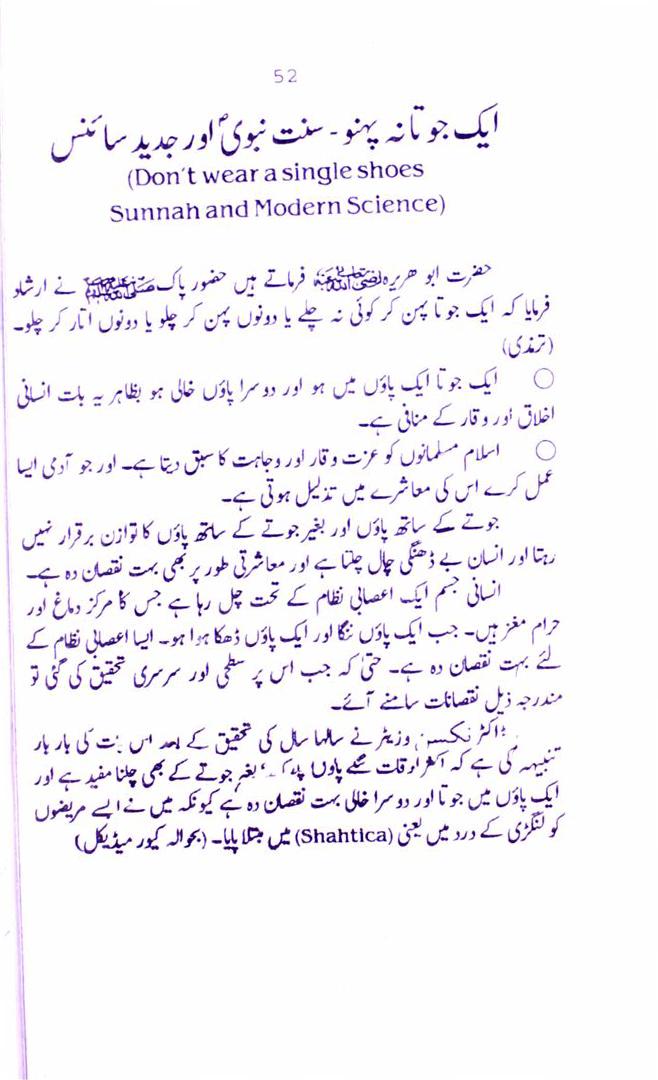 52
ایک جوتا نہ پہنو - سنت نبویؐ اور جدید سائنس
(Don't wear a single shoes
Sunnah and Modern Science)
حضرت ابو ھریرہ رضی اللہ تعالیٰ عنہ فرماتے ہیں حضور پاک صلی اللہ علیہ وسلم نے ارشاد
فرمایا کہ ایک جوتا پہن کر کوئی نہ چلے یا دونوں پہن کر چلو یا دونوں اتار کر چلو۔
(ترمذی)
○ ایک جوتا ایک پاؤں میں ہو اور دوسرا پاؤں خالی ہو بظاہر یہ بات انسانی
اخلاق اور وقار کے منافی ہے۔
○ اسلام مسلمانوں کو عزت و قار اور وجاہت کا سبق دیتا ہے۔ اور جو آدمی ایسا
عمل کرے اس کی معاشرے میں تذلیل ہوتی ہے۔
جوتے کے ساتھ پاؤں اور بغیر جوتے کے ساتھ پاؤں کا توازن برقرار نہیں
رہتا اور انسان بے ڈھنگی چال چلتا ہے اور معاشرتی طور پر بھی بہت نقصان دہ ہے۔
انسانی جسم ایک اعصابی نظام کے تحت چل رہا ہے جس کا مرکز دماغ اور
حرام مغز ہیں۔ جب ایک پاؤں ننگا اور ایک پاؤں ڈھکا ہوا ہو۔ ایسا اعصابی نظام کے
لئے بہت نقصان دہ ہے۔ حتیٰ کہ جب اس پر سطحی اور سرسری تحقیق کی گئی تو
مندرجہ ذیل نقصانات سامنے آئے۔
ڈاکٹر نکسن وزیٹر نے سالہا سال کی تحقیق کے بعد اس بات کی بار بار
تنبیہہ کی ہے کہ اکثر اوقات ننگے پاؤں بغیر جوتے کے بھی چلنا مفید ہے اور
ایک پاؤں میں جوتا اور دوسرا خالی بہت نقصان دہ ہے کیونکہ میں نے ایسے مریضوں
کو لنگڑی کے درد میں یعنی (Shahtica) میں مبتلا پایا۔ (بحوالہ کیور میڈیکل)